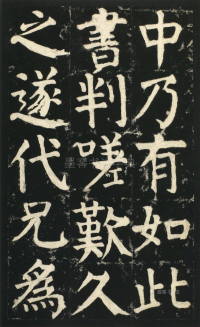 中乃有如此
書判嗟歎久
之遂代兄為